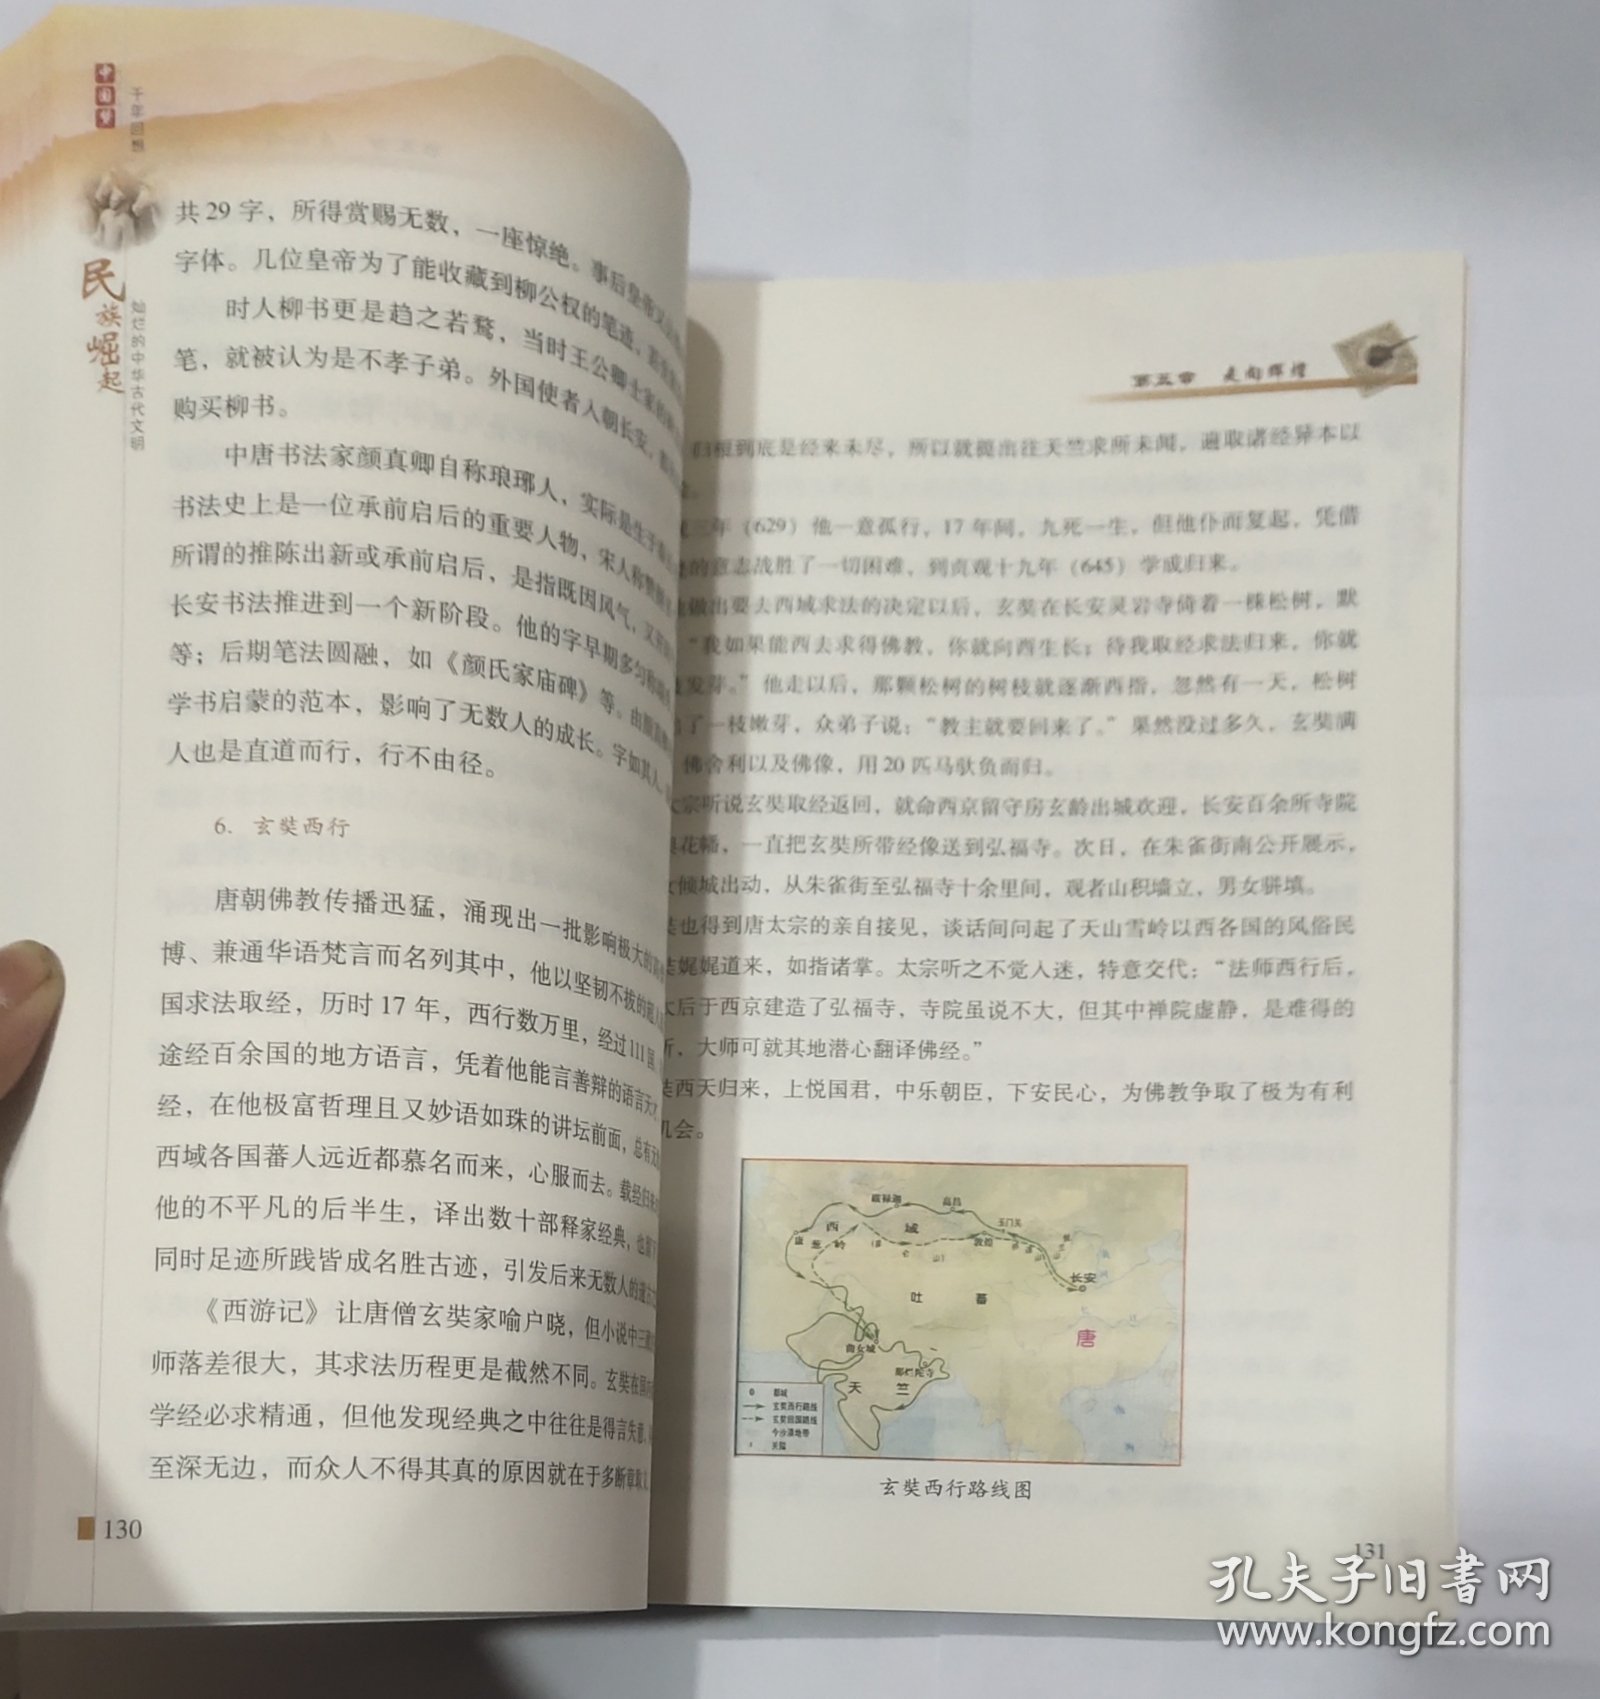 中国梦
千年回想
民族崛起
灿烂的中华古代文明
共29字，所得赏赐无数，一座惊绝。事后皇帝又
字体。几位皇帝为了能收藏到柳公权的笔迹，
时人柳书更是趋之若鹜，当时王公卿士家
笔，就被认为是不孝子弟。外国使者入朝长安，
购买柳书。
中唐书法家颜真卿自称琅琊人，实际是生于
书法史上是一位承前启后的重要人物，宋人称赞
所谓的推陈出新或承前启后，是指既因风气，又
长安书法推进到一个新阶段。他的字早期多匀称
等；后期笔法圆融，如《颜氏家庙碑》等。由
学书启蒙的范本，影响了无数人的成长。字如其人，
人也是直道而行，行不由径。
6. 玄奘西行
唐朝佛教传播迅猛，涌现出一批影响极大的
博、兼通华语梵言而名列其中，他以坚韧不拔的
国求法取经，历时17年，西行数万里，经过111国
途经百余国的地方语言，凭着他能言善辩的语言天
经，在他极富哲理且又妙语如珠的讲坛前面，总有
西域各国蕃人远近都慕名而来，心服而去。载经归来
他的不平凡的后半生，译出数十部释家经典，也
同时足迹所践皆成名胜古迹，引发后来无数人的
《西游记》让唐僧玄奘家喻户晓，但小说中三藏
师落差很大，其求法历程更是截然不同。玄奘在国
学经必求精通，但他发现经典之中往往是得言失意，
至深无边，而众人不得其真的原因就在于多断章取义
130
第五章 走向辉煌
归根到底是经来未尽，所以就提出往天竺求所未闻，遍取诸经异本以
三年（629）他一意孤行，17年间，九死一生，但他仆而复起，凭借
的意志战胜了一切困难，到贞观十九年（645）学成归来。
做出要去西域求法的决定以后，玄奘在长安灵岩寺倚着一棵松树，默
“我如果能西去求得佛教，你就向西生长；待我取经求法归来，你就
发芽。”他走以后，那颗松树的树枝就逐渐西指，忽然有一天，松树
了一枝嫩芽，众弟子说：“教主就要回来了。”果然没过多久，玄奘满
佛舍利以及佛像，用20匹马驮负而归。
太宗听说玄奘取经返回，就命西京留守房玄龄出城欢迎，长安百余所寺院
花幡，一直把玄奘所带经像送到弘福寺。次日，在朱雀街南公开展示，
倾城出动，从朱雀街至弘福寺十余里间，观者山积墙立，男女骈填。
奘也得到唐太宗的亲自接见，谈话间问起了天山雪岭以西各国的风俗民
娓娓道来，如指诸掌。太宗听之不觉入迷，特意交代：“法师西行后，
太后于西京建造了弘福寺，寺院虽说不大，但其中禅院虚静，是难得的
所，大师可就其地潜心翻译佛经。”
奘西天归来，上悦国君，中乐朝臣，下安民心，为佛教争取了极为有利
机会。
高昌
玉门关
西域
葱岭
敦煌
长安
吐蕃
唐
曲女城
那烂陀寺
天竺
都城
玄奘西行路线
玄奘回国路线
今沙漠地带
关隘
玄奘西行路线图
131
孔夫子旧书网
www.kongfz.com